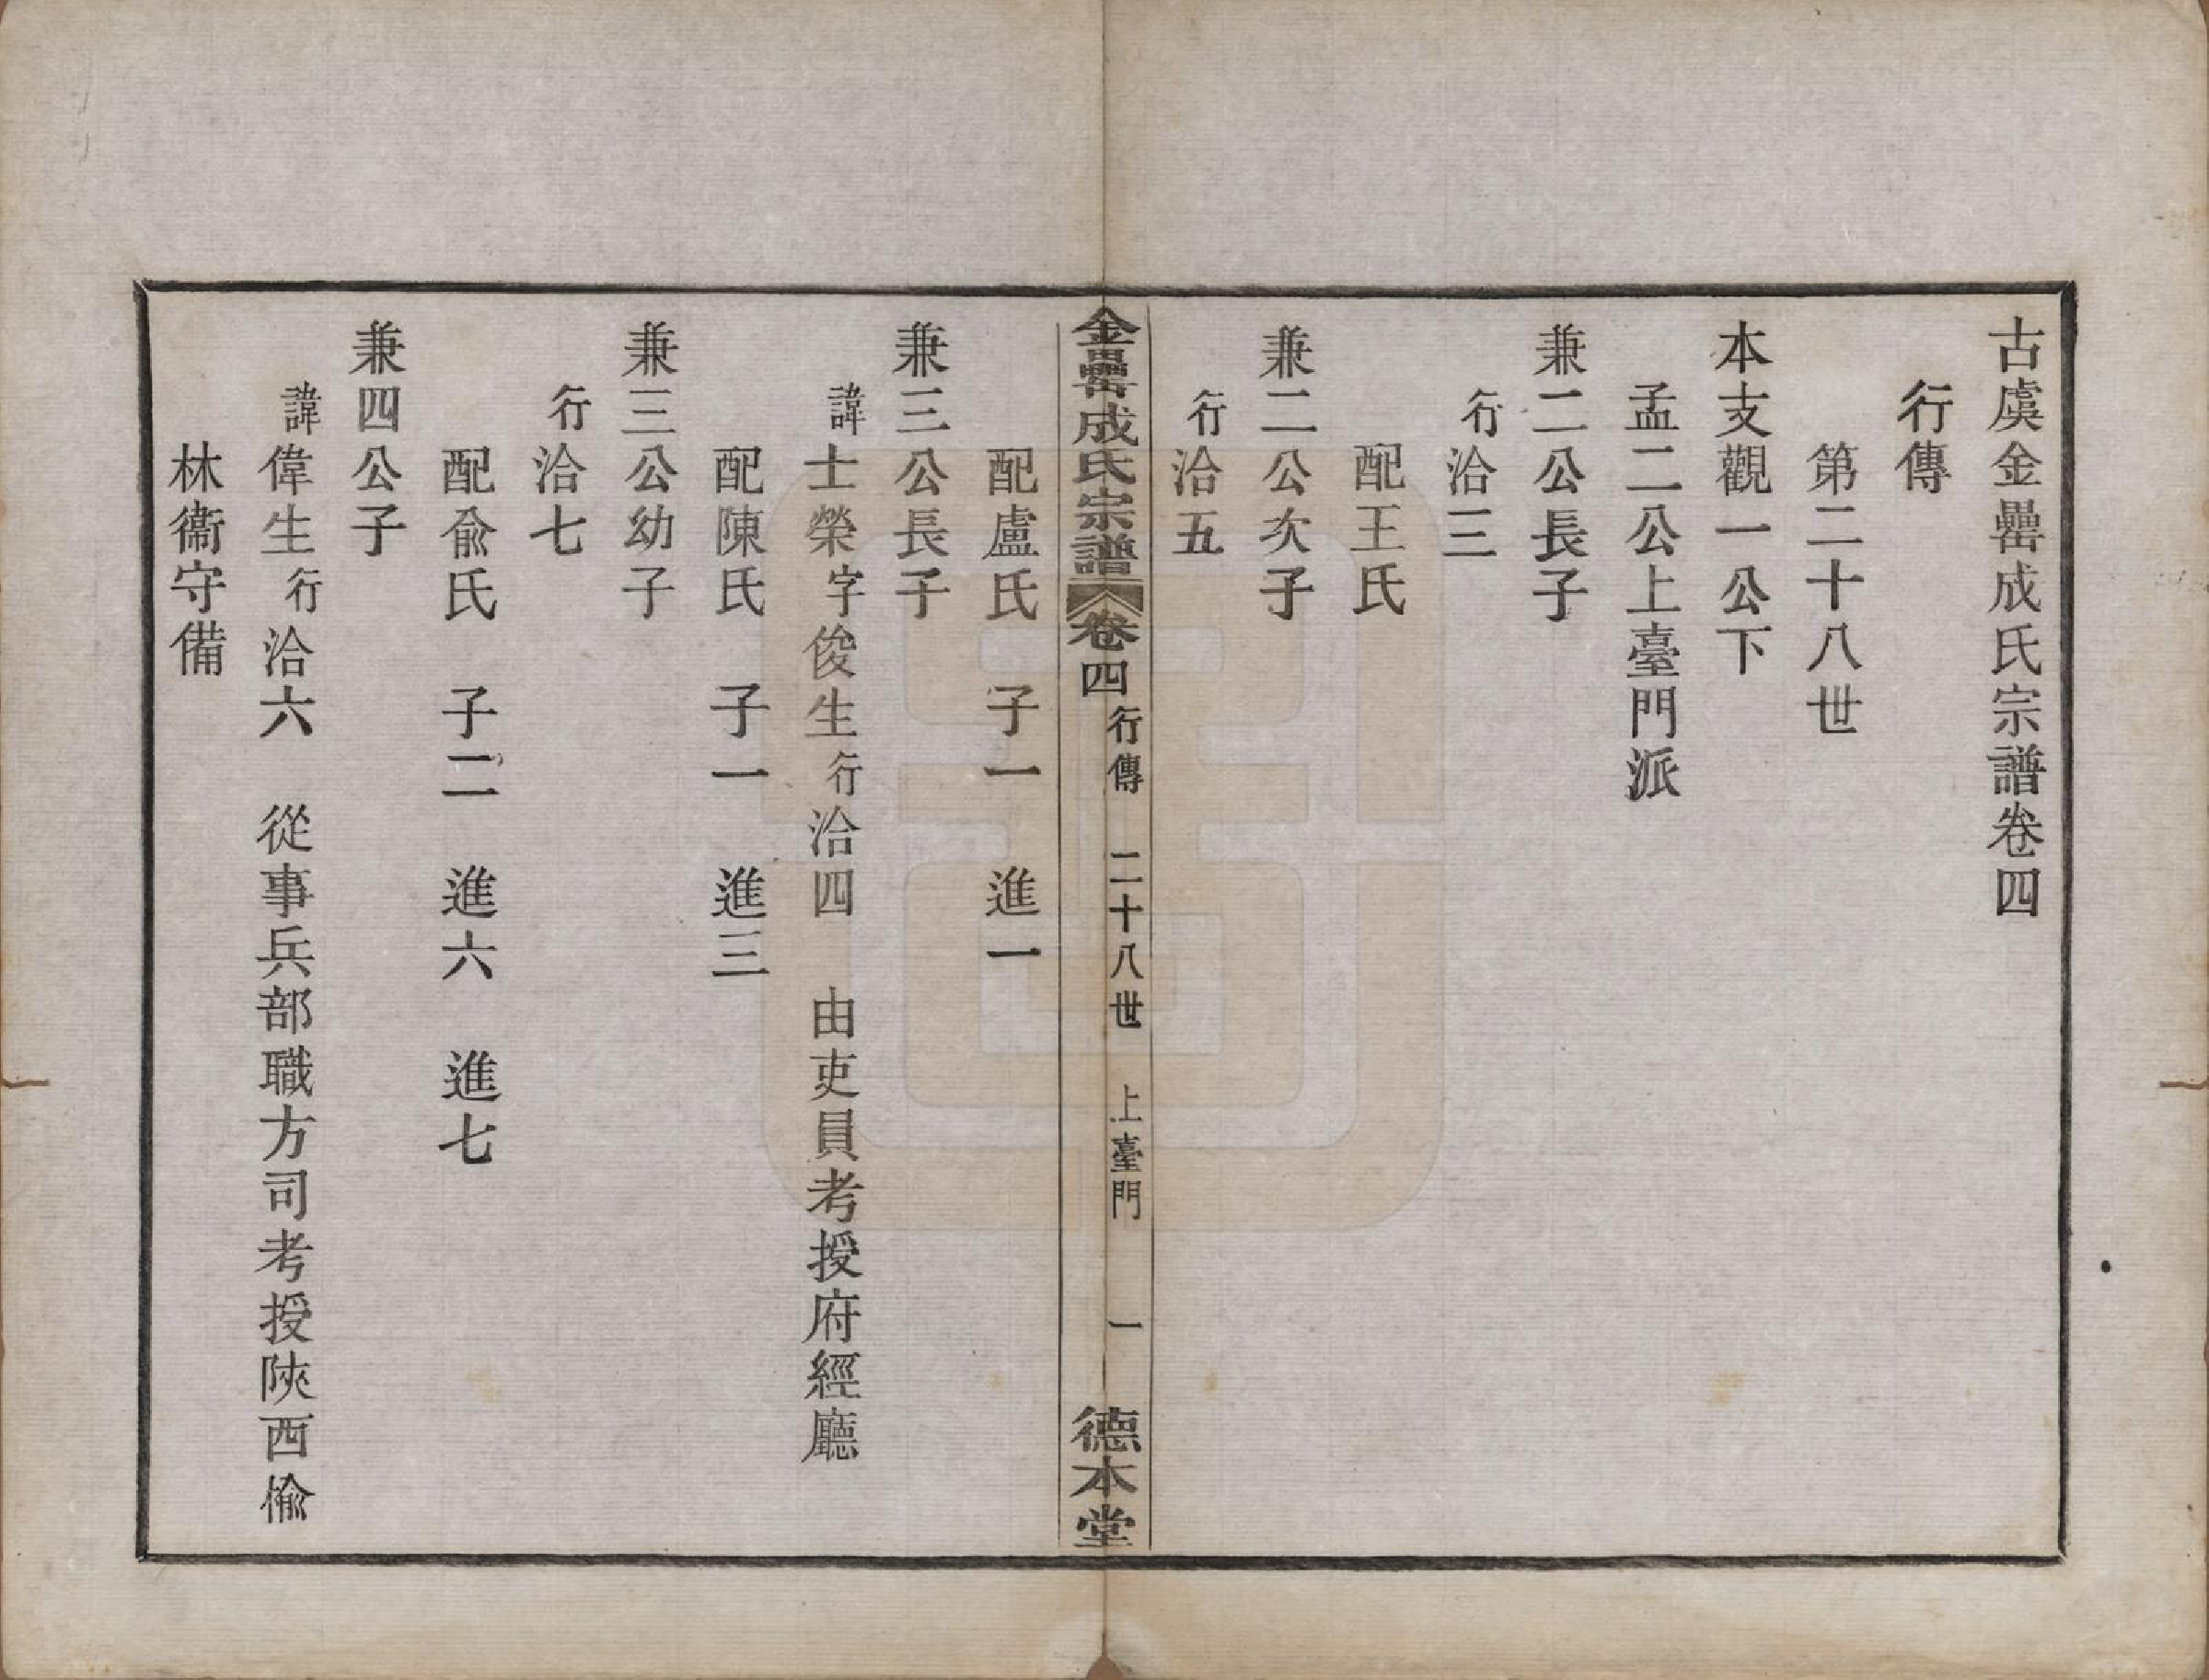 古虞金罍成氏宗譜卷四
行傳
第二十八世
本支觀一公下
孟二公上臺門派
兼二公長子
行洽三
配王氏
兼二公次子
行洽五
金罍成氏宗譜 卷四 行傳 二十八世 上臺門 一 德本堂
配盧氏 子一 進一
兼三公長子
諱士榮字俊生行洽四 由吏員考授府經廳
配陳氏 子一 進三
兼三公幼子
行洽七
配俞氏 子二 進六 進七
兼四公子
諱偉生行洽六 從事兵部職方司考授陝西榆
林衞守備